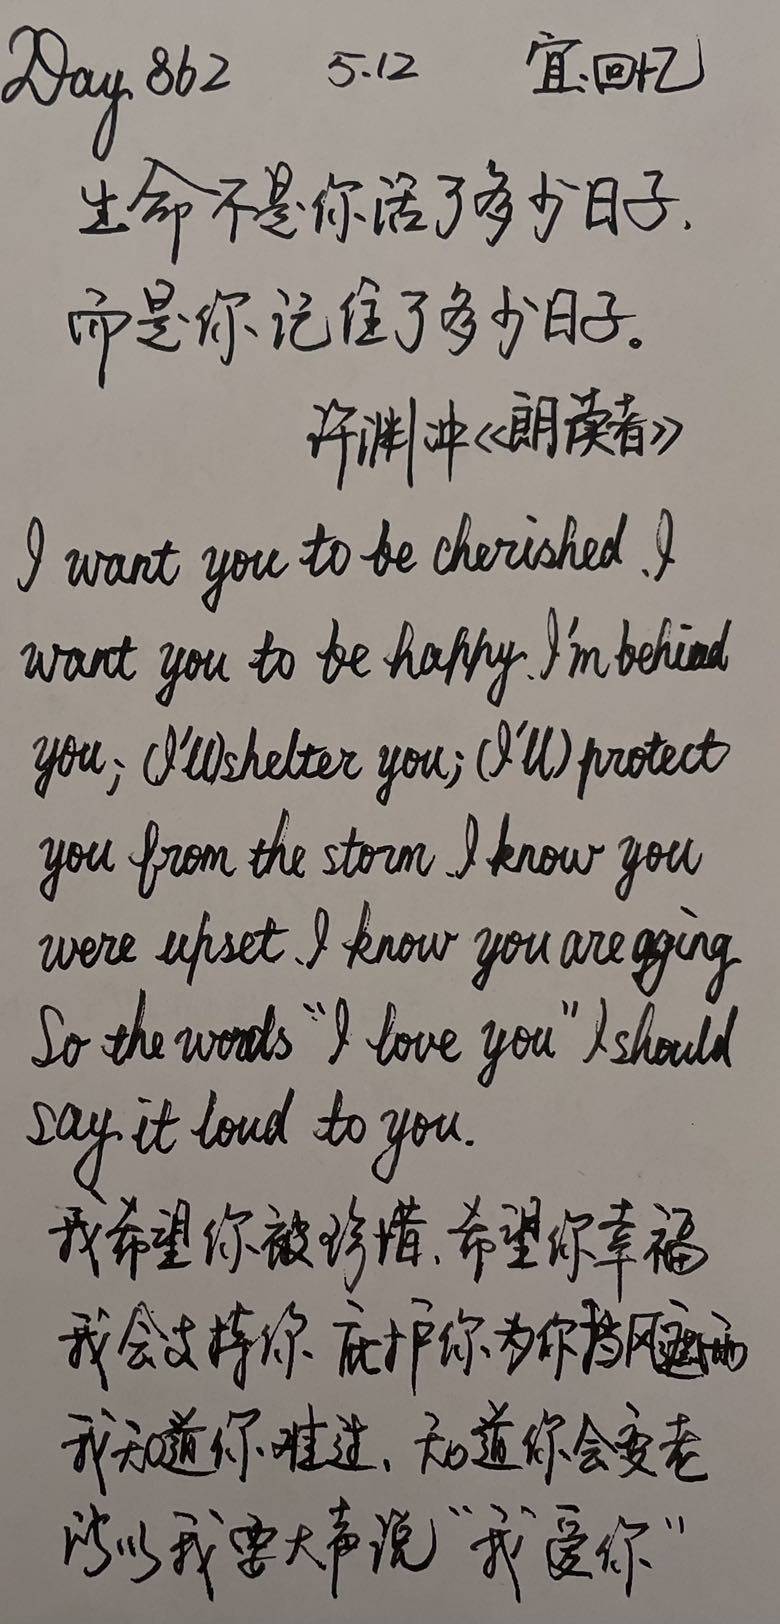 Day 862 5.12 宜:回忆
生命不是你活了多少日子,
而是你记住了多少日子。
许渊冲《朗读者》
I want you to be cherished. I
want you to be happy. I'm behind
you; (I'll) shelter you; (I'll) protect
you from the storm. I know you
were upset. I know you are aging
So the words "I love you" I should
say it loud to you.
我希望你被珍惜,希望你幸福
我会支持你、庇护你、为你挡风遮雨
我知道你难过,知道你会变老
所以我要大声说“我爱你”